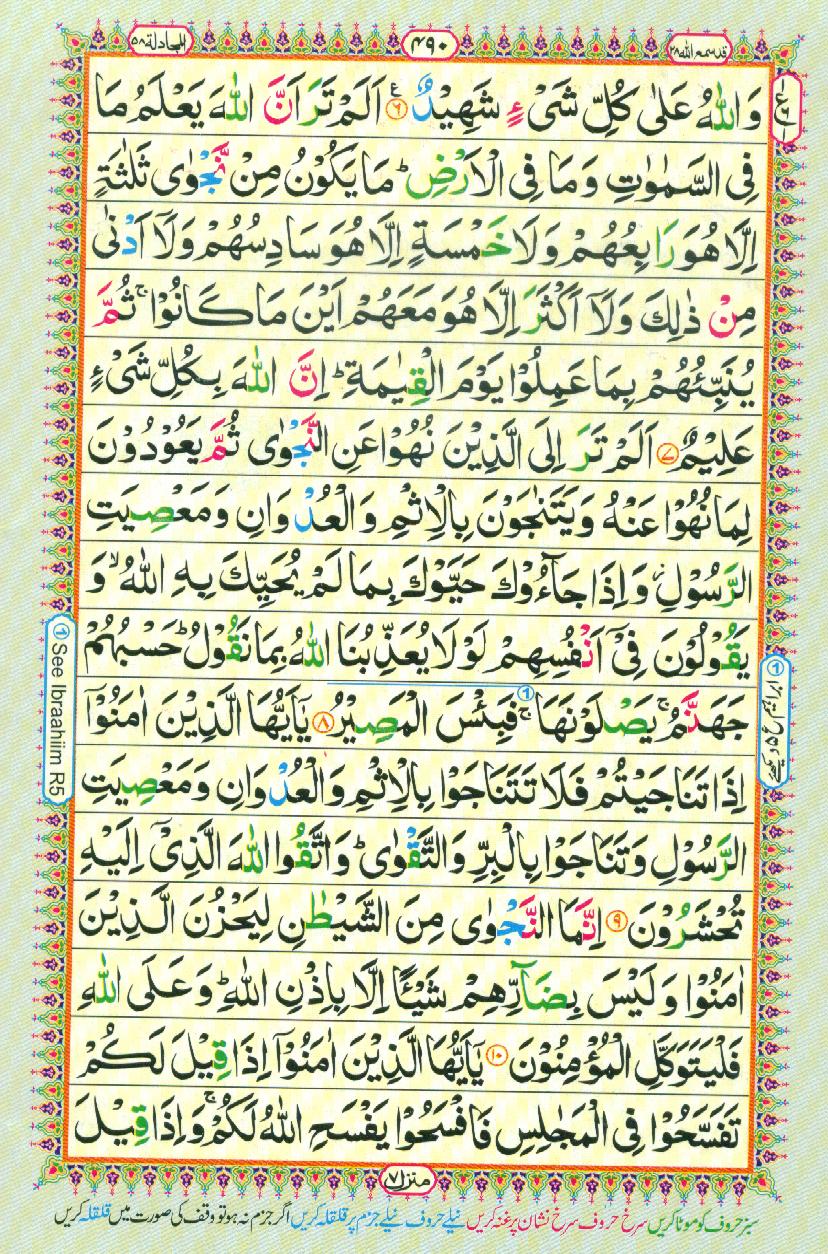 المجادلة ٥٨
٤٩٠
قد سمع الله ٢٨
وَاللّٰهُ عَلٰى كُلِّ شَىْءٍ شَهِيْدٌ ۝۶ اَلَمْ تَرَ اَنَّ اللّٰهَ يَعْلَمُ مَا
فِى السَّمٰوٰتِ وَمَا فِى الْاَرْضِ ؕ مَا يَكُوْنُ مِنْ نَّجْوٰى ثَلٰثَةٍ
اِلَّا هُوَ رَابِعُهُمْ وَلَا خَمْسَةٍ اِلَّا هُوَ سَادِسُهُمْ وَلَاۤ اَدْنٰى
مِنْ ذٰلِكَ وَلَاۤ اَكْثَرَ اِلَّا هُوَ مَعَهُمْ اَيْنَ مَا كَانُوْا ۚ ثُمَّ
يُنَبِّئُهُمْ بِمَا عَمِلُوْا يَوْمَ الْقِيٰمَةِ ؕ اِنَّ اللّٰهَ بِكُلِّ شَىْءٍ
عَلِيْمٌ ۝۷ اَلَمْ تَرَ اِلَى الَّذِيْنَ نُهُوْا عَنِ النَّجْوٰى ثُمَّ يَعُوْدُوْنَ
لِمَا نُهُوْا عَنْهُ وَيَتَنٰجَوْنَ بِالْاِثْمِ وَالْعُدْوَانِ وَمَعْصِيَتِ
الرَّسُوْلِ ؗ وَاِذَا جَآءُوْكَ حَيَّوْكَ بِمَا لَمْ يُحَيِّكَ بِهِ اللّٰهُ ۙ وَ
يَقُوْلُوْنَ فِىْۤ اَنْفُسِهِمْ لَوْلَا يُعَذِّبُنَا اللّٰهُ بِمَا نَقُوْلُ ؕ حَسْبُهُمْ
جَهَنَّمُ ۚ يَصْلَوْنَهَا ۚ ① فَبِئْسَ الْمَصِيْرُ ۝۸ يٰۤاَيُّهَا الَّذِيْنَ اٰمَنُوْۤا
اِذَا تَنَاجَيْتُمْ فَلَا تَتَنَاجَوْا بِالْاِثْمِ وَالْعُدْوَانِ وَمَعْصِيَتِ
الرَّسُوْلِ وَتَنَاجَوْا بِالْبِرِّ وَالتَّقْوٰى ؕ وَاتَّقُوا اللّٰهَ الَّذِىْۤ اِلَيْهِ
تُحْشَرُوْنَ ۝۹ اِنَّمَا النَّجْوٰى مِنَ الشَّيْطٰنِ لِيَحْزُنَ الَّذِيْنَ
اٰمَنُوْا وَلَيْسَ بِضَآرِّهِمْ شَيْئًا اِلَّا بِاِذْنِ اللّٰهِ ؕ وَعَلَى اللّٰهِ
فَلْيَتَوَكَّلِ الْمُؤْمِنُوْنَ ۝۱۰ يٰۤاَيُّهَا الَّذِيْنَ اٰمَنُوْۤا اِذَا قِيْلَ لَكُمْ
تَفَسَّحُوْا فِى الْمَجٰلِسِ فَافْسَحُوْا يَفْسَحِ اللّٰهُ لَكُمْ ۚ وَاِذَا قِيْلَ
① See Ibraahiim R5
منزل ٧
سبز حروف کو موٹا کریں سرخ حروف سرخ نشان پر غنہ کریں نیلے حروف نیلے جزم پر قلقلہ کریں اگر جزم نہ ہو تو وقف کی صورت میں قلقلہ کریں